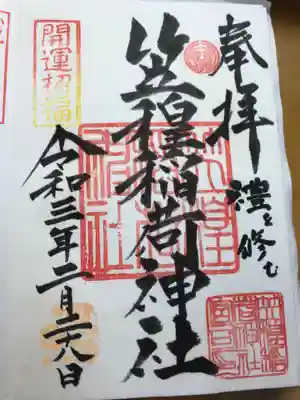 奉拝
禮を修む
笠䅣稲荷神社
開運招福
令和三年二月二八日